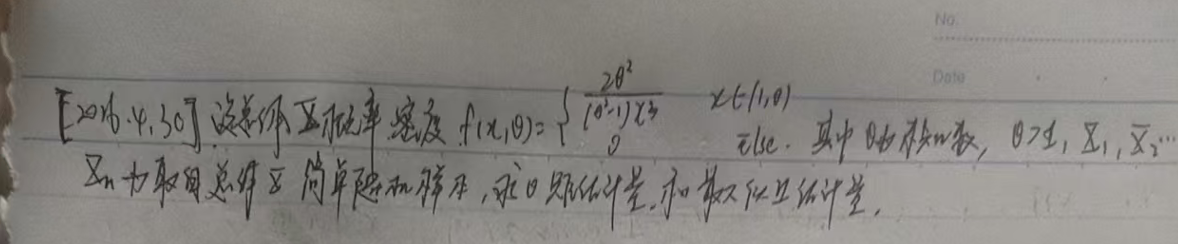 No.
Date
[2026.4,30] 设总体X概率密度 f(x,θ)= { 2θ²/((θ²-1)x³) x∈(1,θ) 0 else. 其中θ为未知参数, θ>1, X₁, X₂…
Xn为取自总体X简单随机样本,求θ矩估计量.和最大似然估计量.